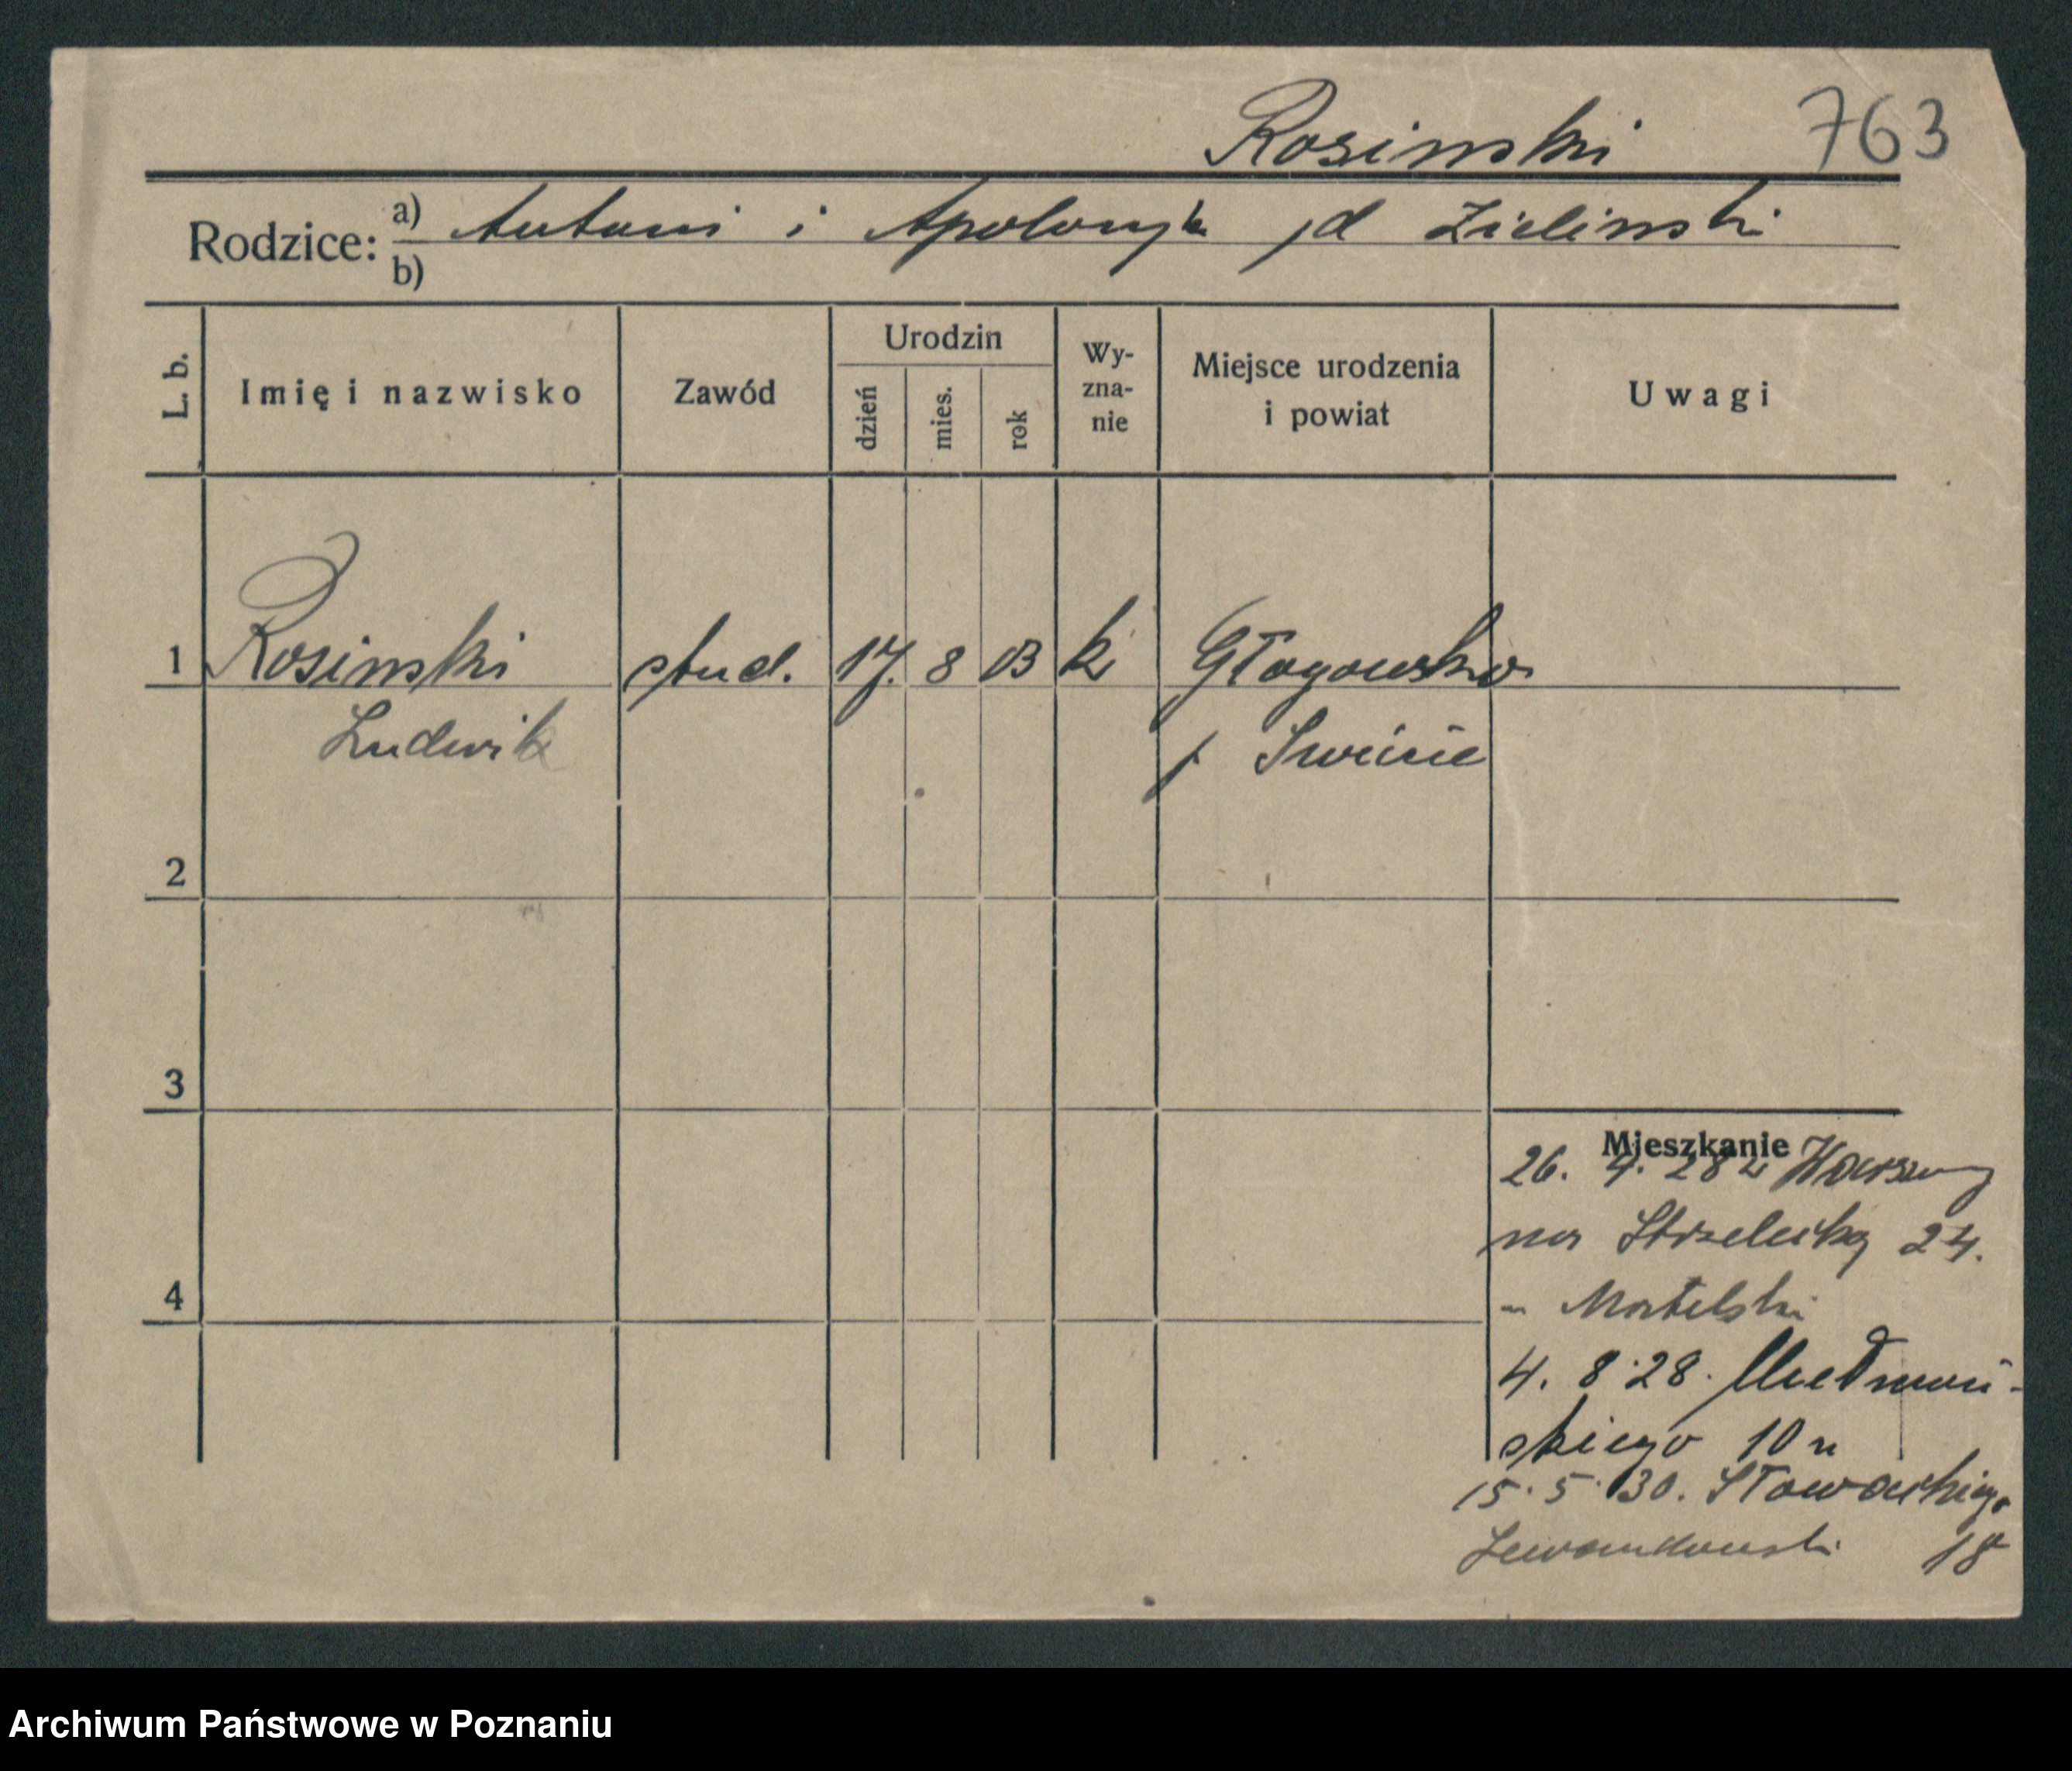 Rosinski 763
Rodzice: a) Antoni i Apolonja jd Zielinski
b)
L. b. Imię i nazwisko Zawód Urodzin dzień mies. rok Wy-zna-nie Miejsce urodzenia i powiat Uwagi
1 Rosinski stud. 17. 8 03 k Głogowko
Ludwik p Swiecie
2
3
Mieszkanie
26. 4. 28 z Warszawy
na Strzelecką 24.
4
4. 8 28.
skiego 10
15. 5. 30. Słowackiego
Lewandowski 18
Archiwum Państwowe w Poznaniu